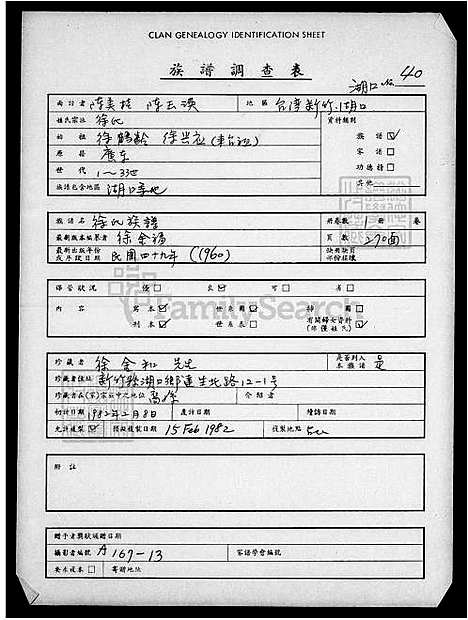 CLAN GENEALOGY IDENTIFICATION SHEET
族譜調查表
湖口 No. 40
面訪者 陳美桂 地區 台灣新竹.湖口
姓氏宗派 徐氏 資料類別
始祖 徐鶴齡 徐 (來台祖) 族譜
原籍 廣東 家譜
世代 1～3 功德榜
族譜包含地區 湖口 其他
族譜名 徐氏族譜 冊卷數 1 冊 卷
最新版本編纂者 徐金福 頁數 270面
最新出版年份或序段日期 民國四十九年 (1960)
保管狀況 優 良 可 劣
內容 寫本 世系圖 插圖
刊本 世系表 有關婦女資料
FamilySearch
珍藏者 徐金和 先生 是否列入本族譜 是
珍藏者住址 新竹縣湖口鄉蓮生北路12-1號
珍藏者在(家)宗族中之地位 介紹者
初訪日期 1982年2月8日 產訪日期 續訪日期
允許複製 預擬複製日期 15 Feb 1982 複製地點
附註
贈予者獎狀頒贈日期
攝影者編號 A 167-13 家譜學會編號
要求複本 寄贈地址